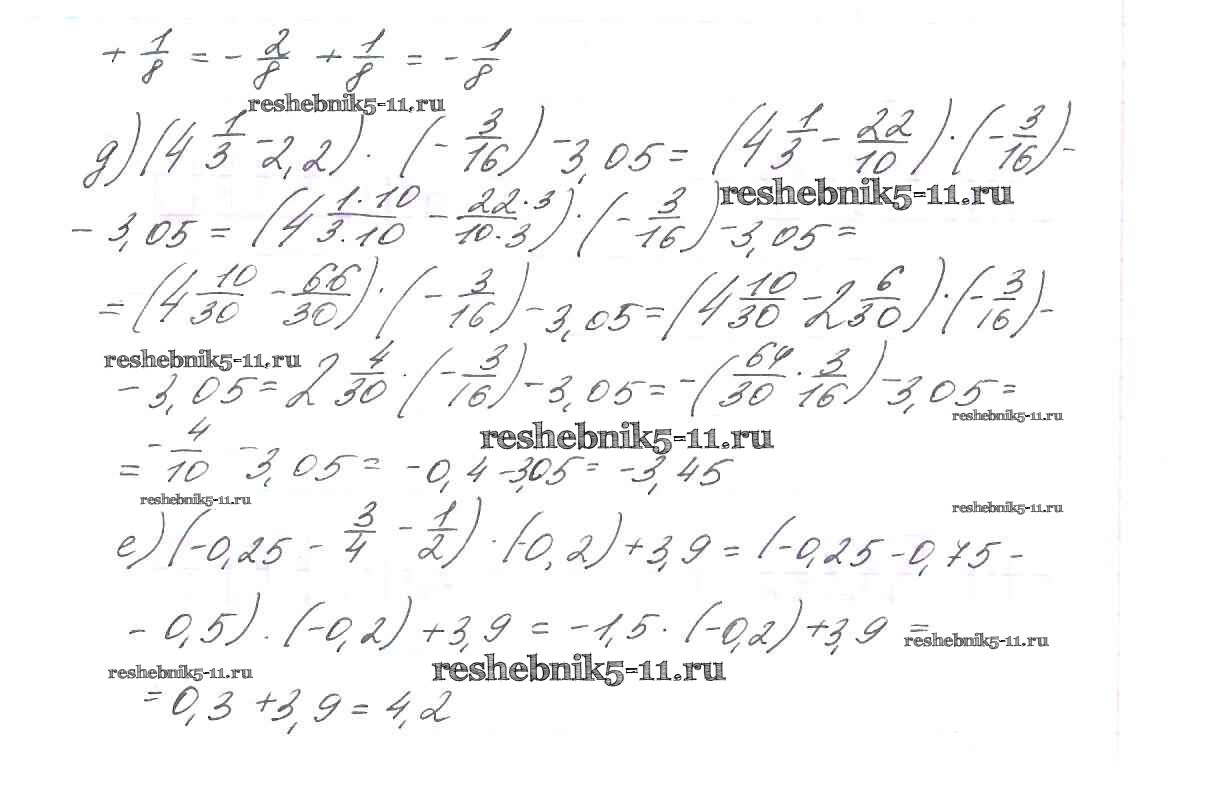 + 1/8 = - 2/8 + 1/8 = - 1/8
reshebnik5-11.ru
д) (4 1/3 - 2,2) · (- 3/16) - 3,05 = (4 1/3 - 22/10) · (- 3/16) -
reshebnik5-11.ru
- 3,05 = (4 1·10/3·10 - 22·3/10·3) · (- 3/16) - 3,05 =
= (4 10/30 - 66/30) · (- 3/16) - 3,05 = (4 10/30 - 2 6/30) · (- 3/16) -
reshebnik5-11.ru
- 3,05 = 2 4/30 · (- 3/16) - 3,05 = - (64/30 · 3/16) - 3,05 =
reshebnik5-11.ru
reshebnik5-11.ru
= - 4/10 - 3,05 = - 0,4 - 3,05 = - 3,45
reshebnik5-11.ru
reshebnik5-11.ru
е) (-0,25 - 3/4 - 1/2) · (-0,2) + 3,9 = (-0,25 - 0,75 -
- 0,5) · (-0,2) + 3,9 = -1,5 · (-0,2) + 3,9 =
reshebnik5-11.ru
reshebnik5-11.ru
reshebnik5-11.ru
= 0,3 + 3,9 = 4,2